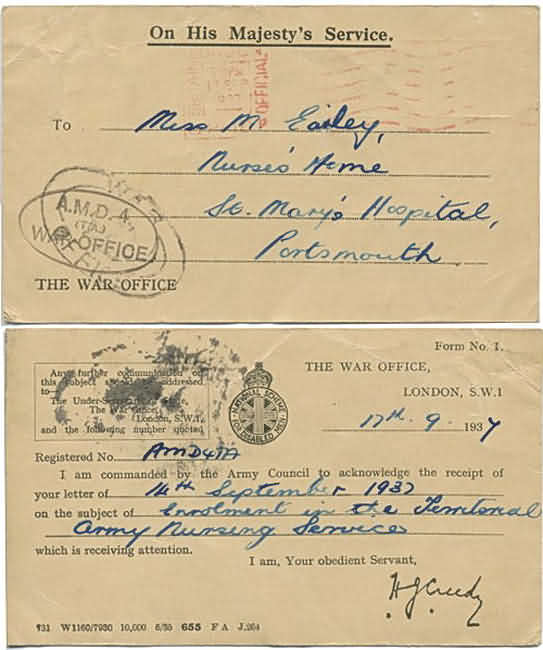 On His Majesty's Service.
OFFICIAL
To Miss M Easley,
Nurse's Home
St. Mary's Hospital,
Portsmouth
A.M.D. 4.
WAR OFFICE
THE WAR OFFICE
Form No. 1.
Any further communication on
this subject should be addressed
to—
The Under-Secretary of State,
The War Office,
London, S.W.1,
and the following number quoted
NATIONAL SCHEME
FOR DISABLED MEN
THE WAR OFFICE,
LONDON, S.W.1
17th. 9. 1937
Registered No. AMD4TA
I am commanded by the Army Council to acknowledge the receipt of
your letter of 14th September 1937
on the subject of Enrolment in the Territorial
Army Nursing Service
which is receiving attention.
I am, Your obedient Servant,
H J Creedy
W1160/7930 10,000 5/35 655 F A J.264